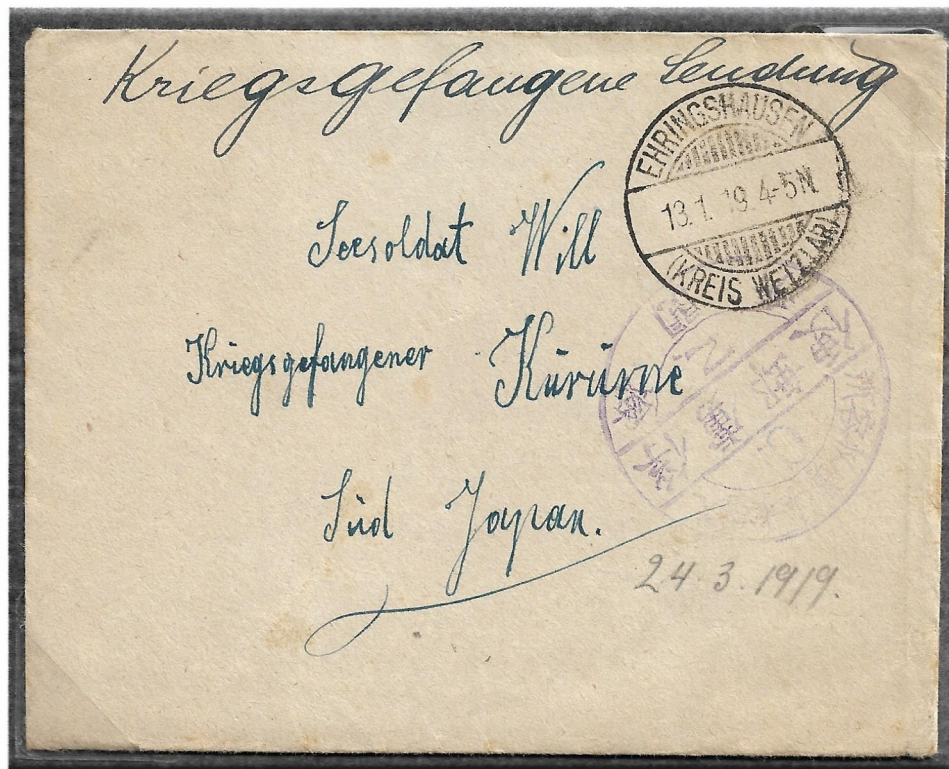 Kriegsgefangene Sendung
EHRINGSHAUSEN
13.1.19.4-5N
(KREIS WETZLAR)
Seesoldat Will
Kriegsgefangener Kurume
Süd Japan.
24.3.1919.